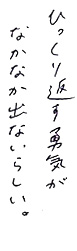 ひっくり返す勇気が
なかなか出ないらしい。